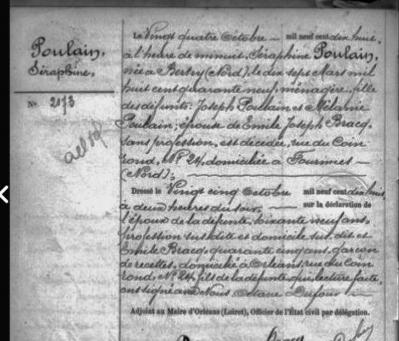 Poulain,
Séraphine.
N° 2073
Le Vingt quatre Octobre — mil neuf cent dix huit,
à l'heure de minuit, Séraphine Poulain,
née à Bertry (Nord), le dix sept Mars mil
huit cent quarante neuf, ménagère, fille
des défunts: Joseph Poulain et Mélanie
Poulain; épouse de Emile Joseph Bracq,
sans profession, est décédée, rue du Coin
rond, N° 24, domiciliée à Fourmies —
(Nord);
Dressé le Vingt cinq Octobre mil neuf cent dix huit
à deux heures du soir, — sur la déclaration de
l'époux de la défunte, soixante neuf ans,
profession susdite et domicile susdit et
Emile Bracq, quarante cinq ans, garçon
de recettes, domicilié à Orléans, rue du Coin
rond, N° 24, fils de la défunte, qui, lecture faite,
ont signé avec Nous Dufour
Adjoint au Maire d'Orléans (Loiret), Officier de l'État civil par délégation.